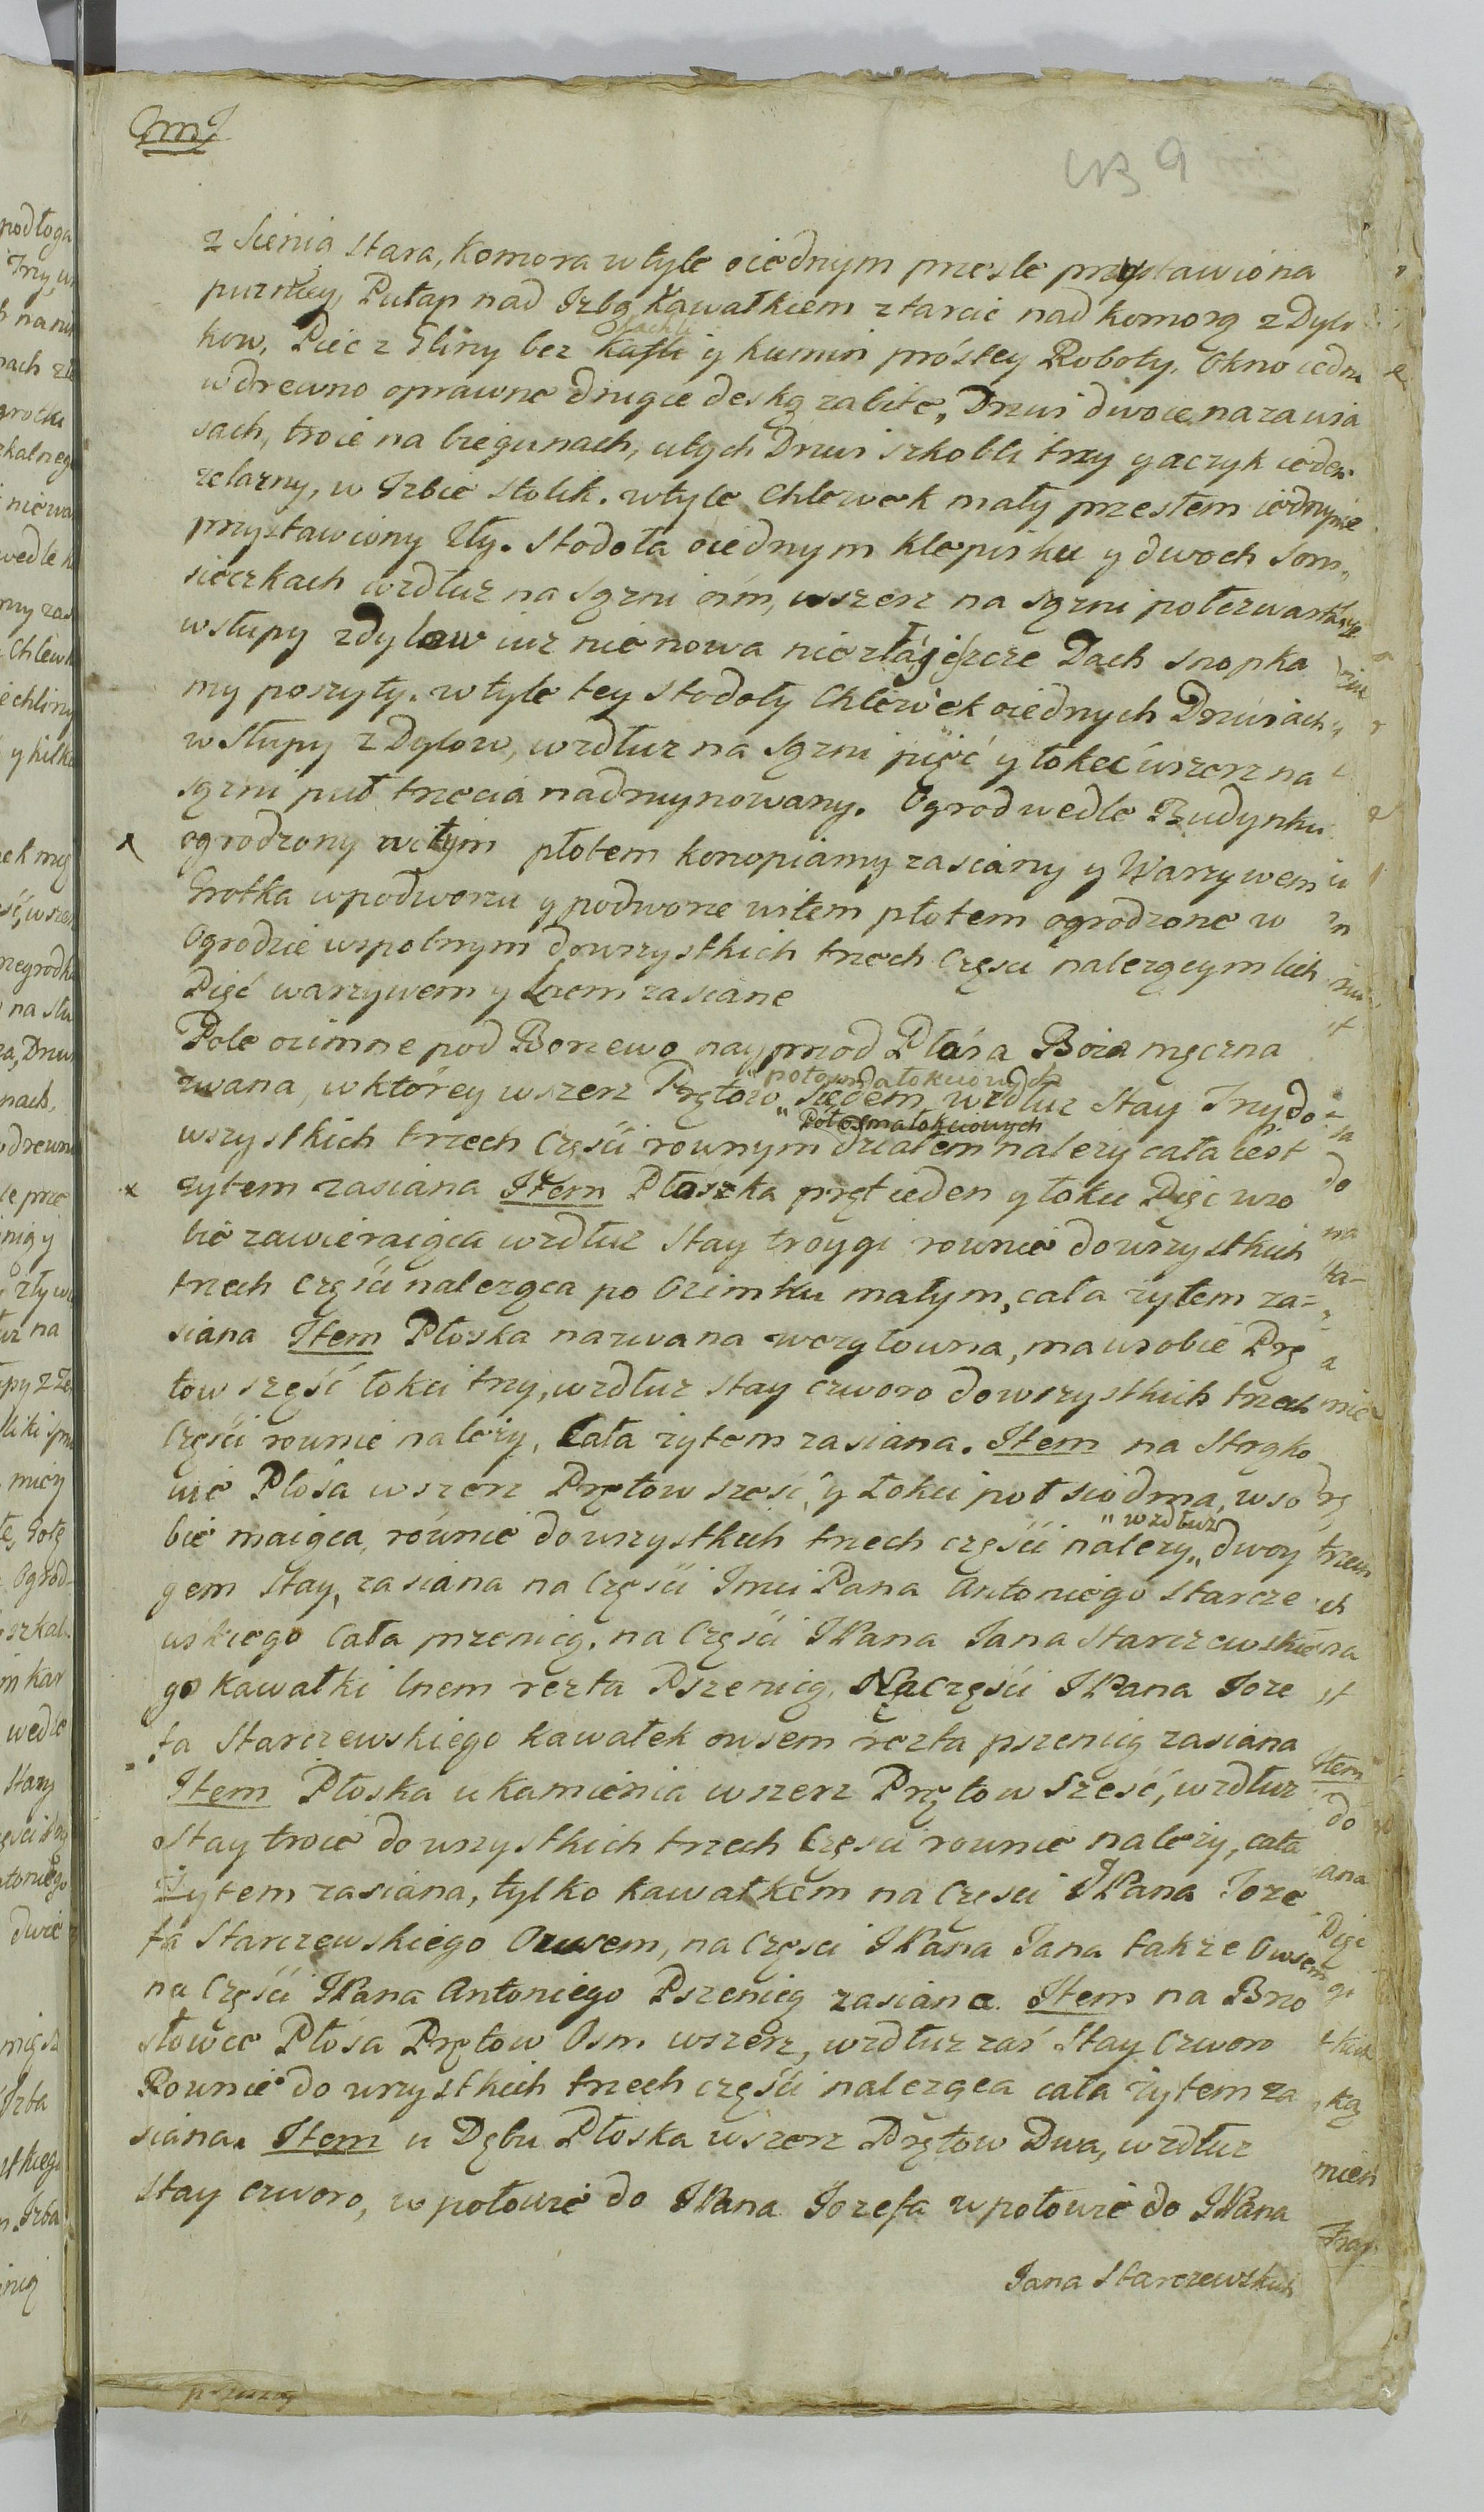 9
z Sienią stara, Komora wtyle oiednym przesle przystawiona
Pułap nad Izbą Kawałkiem z tarcic nad komorą z Dylo
kow, Piec z Gliny bez kafli y kumin prostey Roboty. Okno iedno
wdrewno oprawne drugie deską zabite, Drzwi dwoie na zawia
sach, troie na biegunach, utych Drzwi szkobli trzy y aczyk ieden
zelazny, w Izbie Stolik. wtyle Chlewek mały przesłem iednym
przystawiony zły. Stodoła oiednym klepisku y dwoch som„
sieczkach wzdłuz na sązni ośm, wszerz na sązni połczwarta
wsłupy zdylow iuz nie nowa niezła ieszcze Dach snopka
my poszyty. wtyle tey Stodoły Chlewek oiednych Drzwiach
w słupy z Dylow, wzdłuz na sązni pięć y łokeć wszerz na
sązni puł trzecia nadruynowany. Ogrod wedle Budynku
ogrodzony płotem konopiamy zasiany y Warzywem
Grotka wpodworzu y podworze wiłem płotem ogrodzone w
Ogrodzie wspolnym dowszystkich trzech Części nalezącym lich
Pięć warzywem y Lnem zasiane
Pole ozimne pod Borzewo nayprzod Płosa Boza męczna
zwana, w ktorey wszerz Prętow siedem wzdłuz Stay Trzy do
"Połosmałokciowych
wszystkich trzech Części rownym działem nalezy cała iest
zytem zasiana Item Płoszka pręt ieden y łokci Pięc wso
bie zawieraiąca wzdłuz Stay troygi rownie dowszystkich
trzech Części naleząca po Ozimku małym, cała zytem za=
siana Item Płoska nazwana wezgłowna, ma wsobie Prę
tow szęść łokci trzy, wzdłuz stay czworo dowszystkich trzech
Części rownie nalezy, Cała zytem zasiana. Item na
Płosa wszerz Prętow szesć, y Łokci poł siodma, wso
bie maiąca, rownie dowszystkich trzech części nalezy „ wzdłuz dwoy
gem Stay, zasiana na Części Imci Pana Antoniego Starcze
wskiego Cała przenicą, na Części JPana Jana Starczewskie
go kawałki lnem rezta Pszenicą, Na Części JPana Joze
fa Starczewskiego kawałek owsem rezta pszenicą zasiana
Item Płoska u kamienia wszerz Prętow Szesć, wzdłuz
Stay troie dowszystkich trzech Części rownie nalezy, cała
Zytem zasiana, tylko kawałkem na Części JPana Joze
fa Starczewskiego Owsem, na Części JPana Jana takze Owsem
na Części JPana Antoniego Pszenicą zasiana. Item na Brzo
stowce Płosa Prętow Osm wszerz, wzdłuz zaś Stay Czworo
Rownie do wszystkich trzech części naleząca cała zytem za
siana. Item u Dębu Płoska wszerz Prętow Dwa, wzdłuz
Stay czworo, w połowie do JPana Jozefa w połowie do JPana
Jana Starczewskich